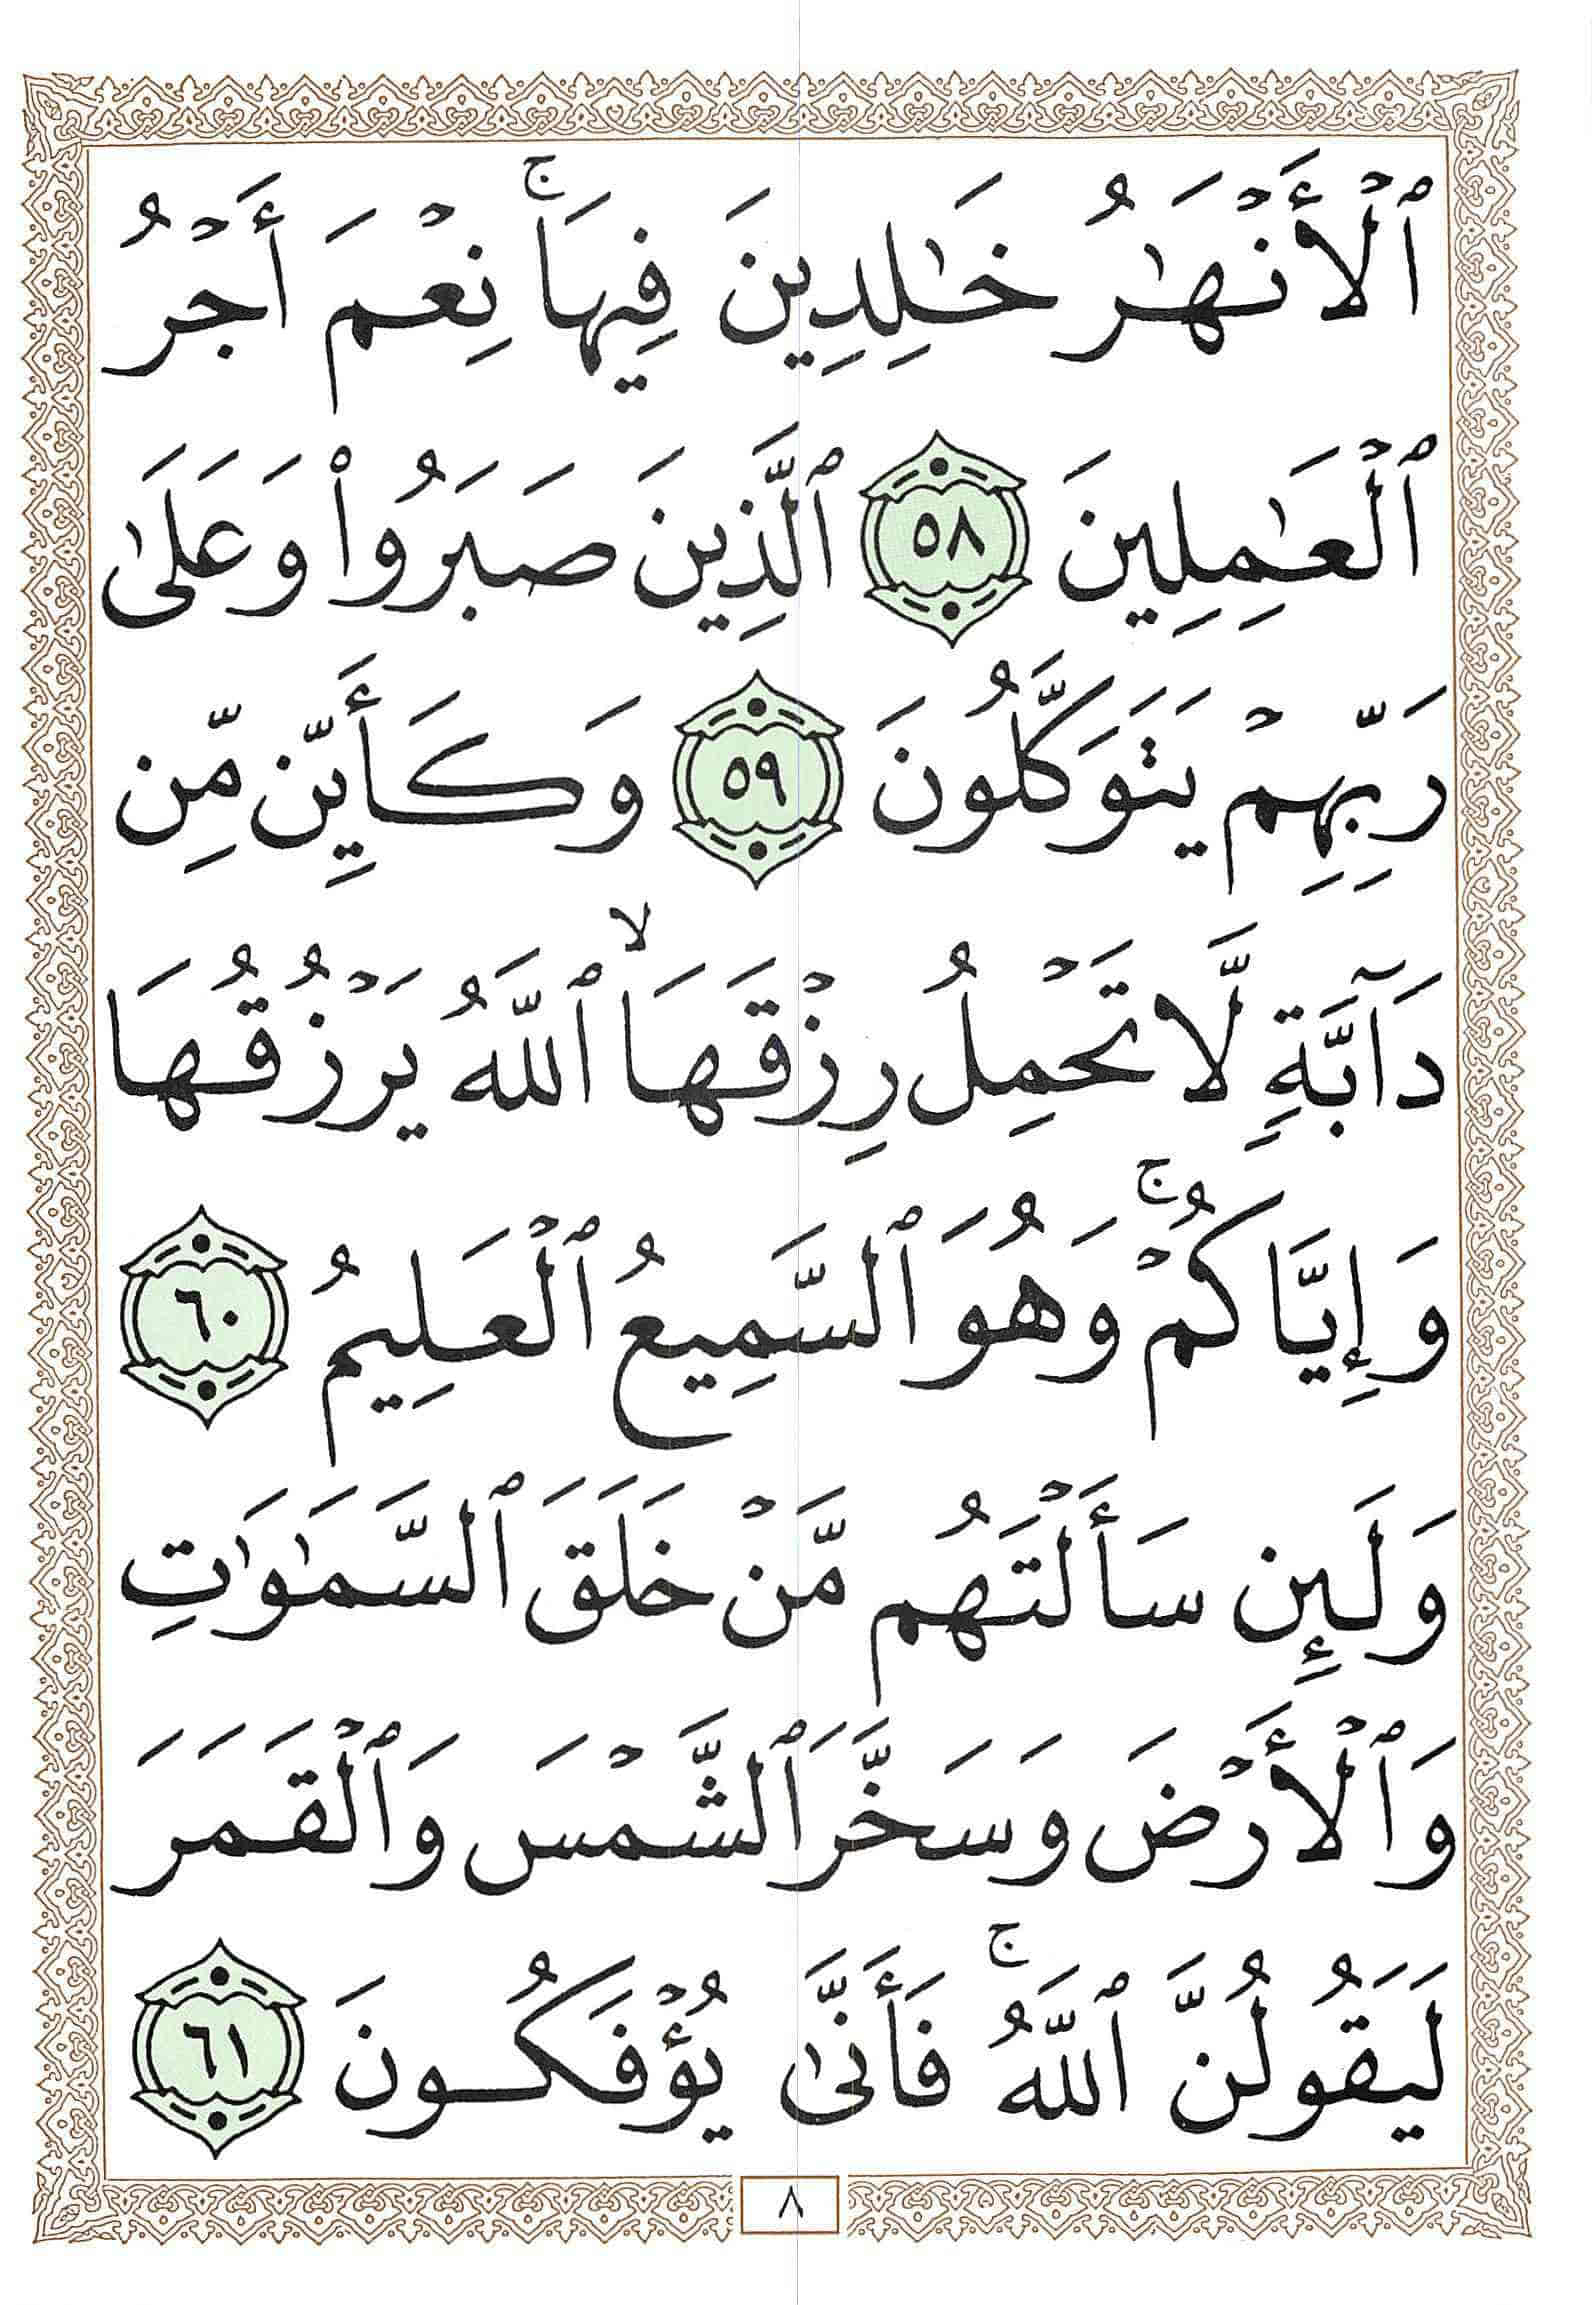 ٱلْأَنْهَـٰرُ خَـٰلِدِينَ فِيهَا ۚ نِعْمَ أَجْرُ
ٱلْعَـٰمِلِينَ ٥٨ ٱلَّذِينَ صَبَرُوا۟ وَعَلَىٰ
رَبِّهِمْ يَتَوَكَّلُونَ ٥٩ وَكَأَيِّن مِّن
دَآبَّةٍ لَّا تَحْمِلُ رِزْقَهَا ۙ ٱللَّهُ يَرْزُقُهَا
وَإِيَّاكُمْ ۚ وَهُوَ ٱلسَّمِيعُ ٱلْعَلِيمُ ٦٠
وَلَئِن سَأَلْتَهُم مَّنْ خَلَقَ ٱلسَّمَـٰوَٰتِ
وَٱلْأَرْضَ وَسَخَّرَ ٱلشَّمْسَ وَٱلْقَمَرَ
لَيَقُولُنَّ ٱللَّهُ ۚ فَأَنَّىٰ يُؤْفَكُونَ ٦١
٨